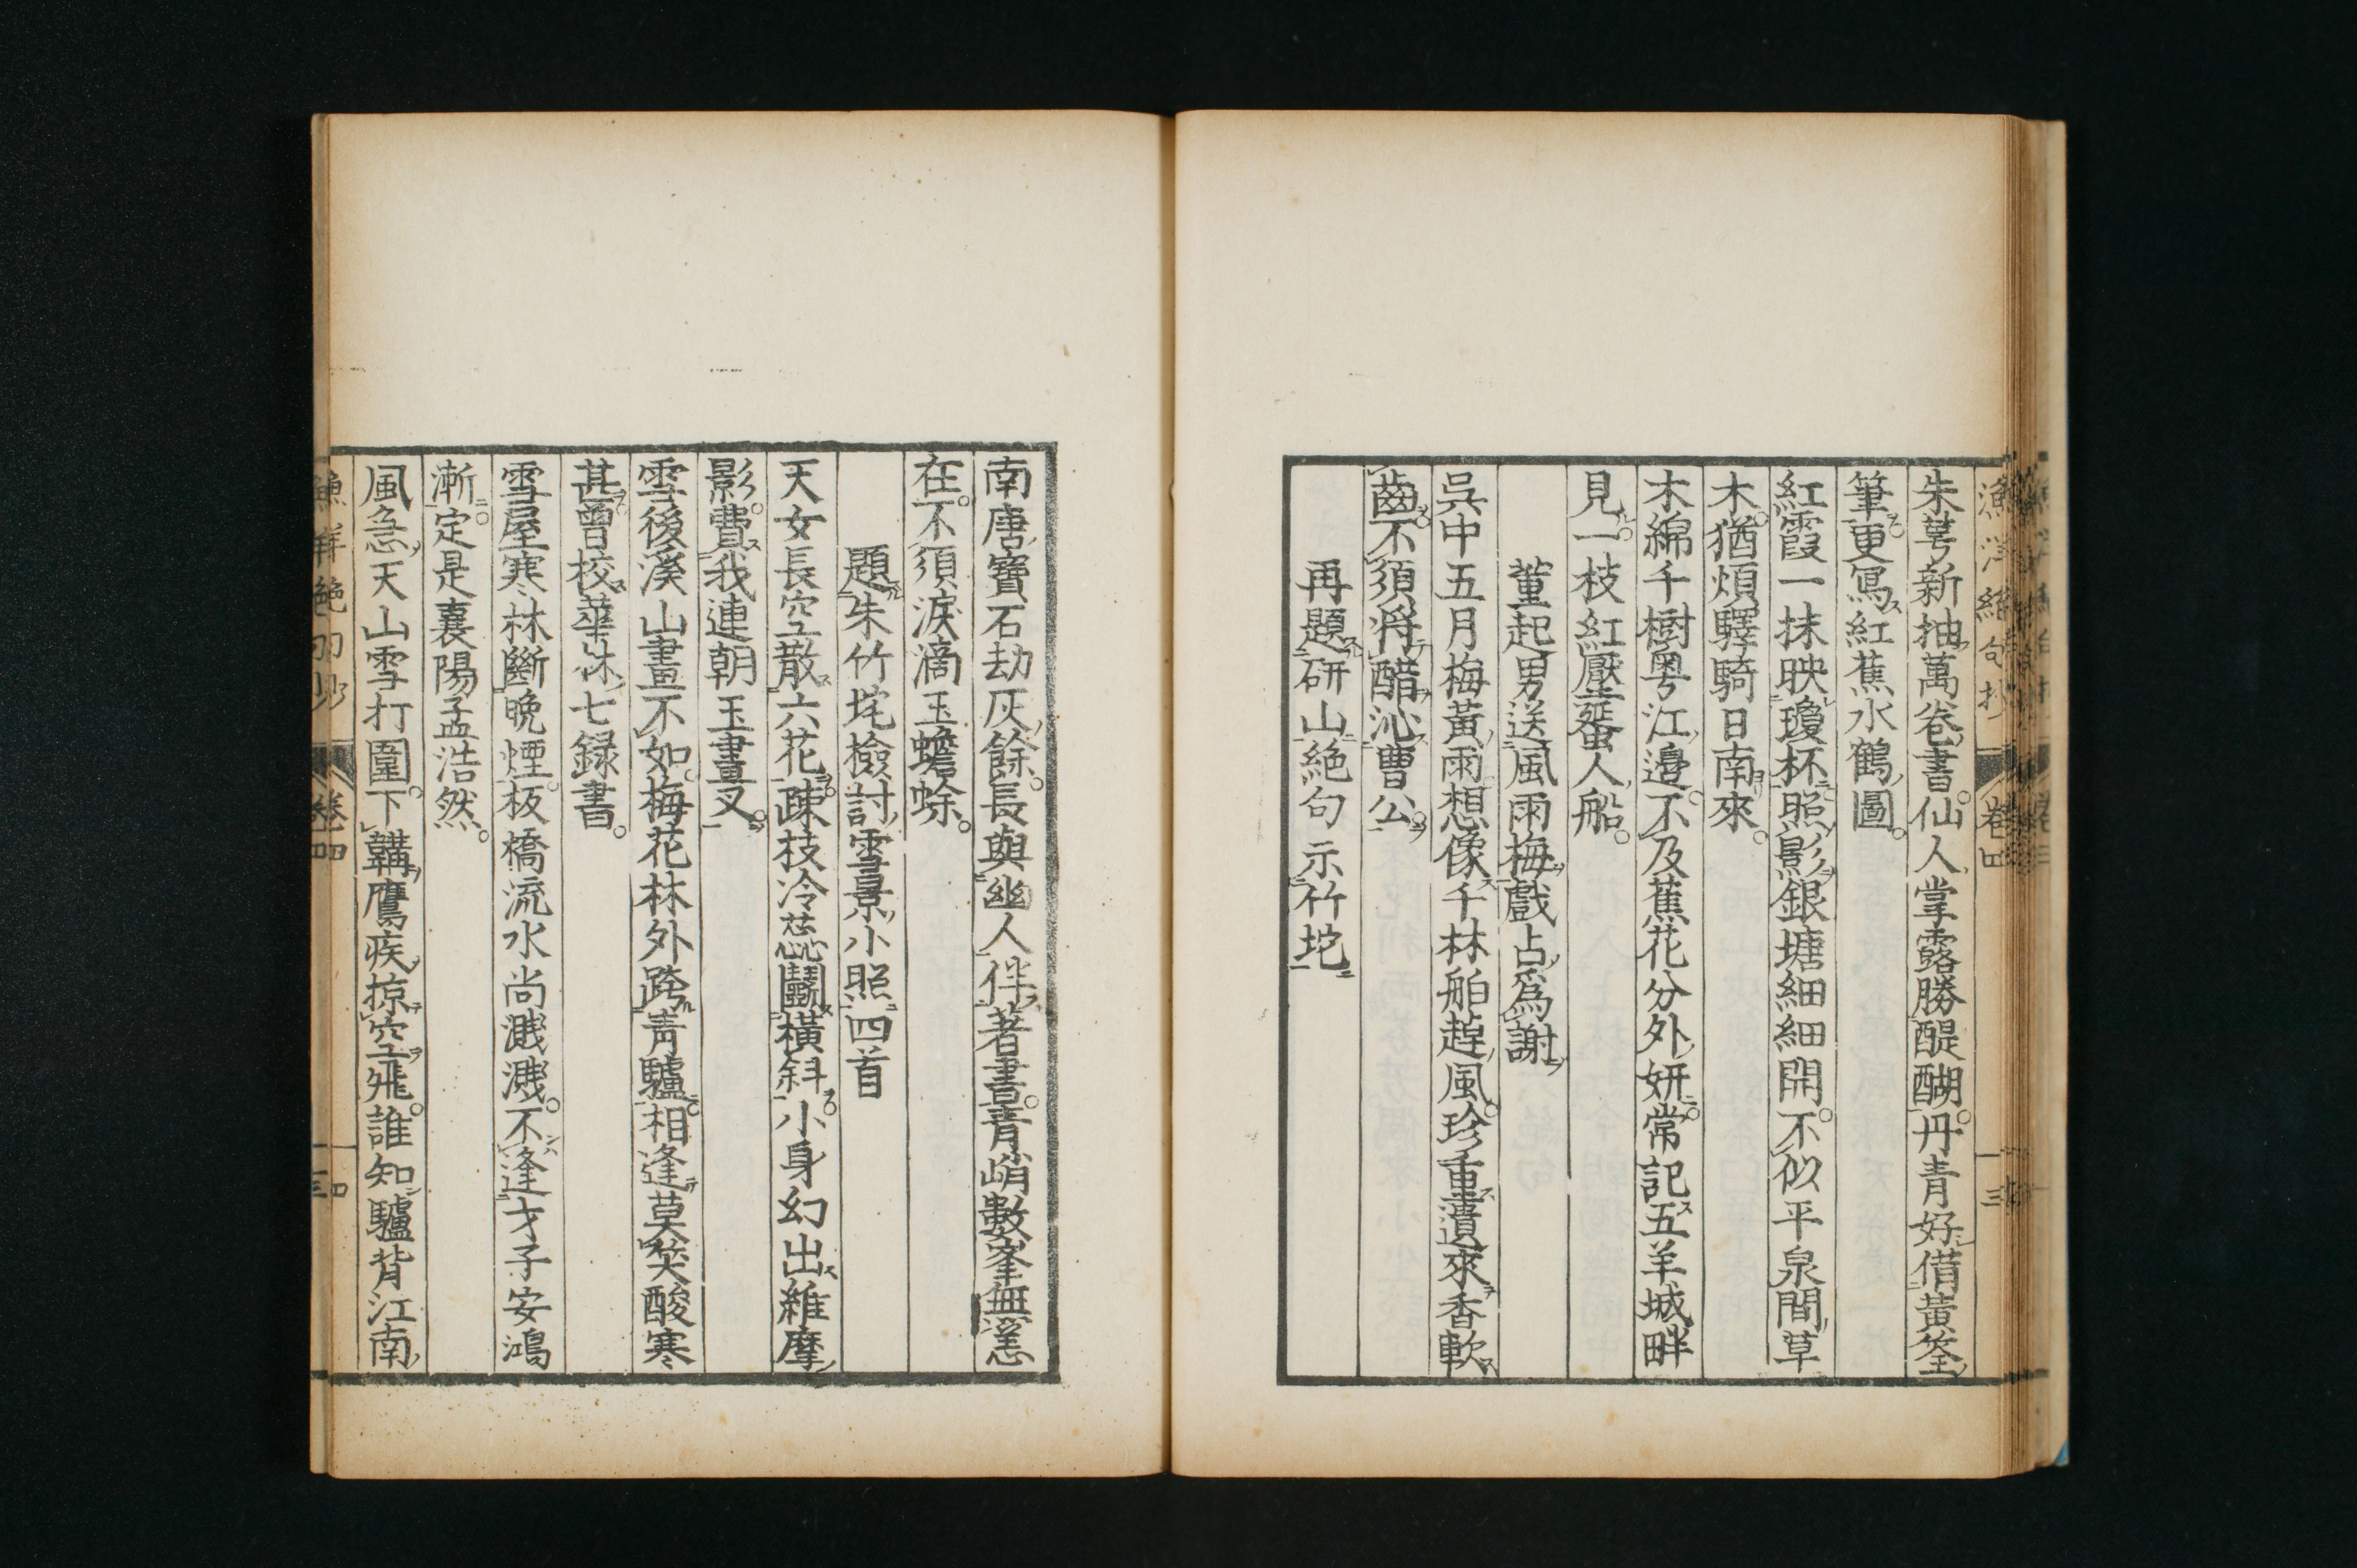 漁洋絶句抄 卷四 十三
朱萼新抽萬卷書。仙人掌露勝醍醐。丹青好借黃筌
筆。更寫紅蕉水鶴圖。
紅霞一抹映瓊杯。照影銀塘細細開。不似平泉閒草
木。猶煩驛騎日南來。
木綿千樹粤江邊。不及蕉花分外妍。常記五羊城畔
見。一枝紅壓蜑人船。
董起男送風雨梅戲占爲謝
吳中五月梅黃雨。想像千林舶趠風。珍重遺來香軟
齒。不須將醋沁曹公。
再題研山絶句示竹垞
南唐寶石劫灰餘。長與幽人伴著書。青峭數峯無恙
在。不須淚滴玉蟾蜍。
題朱竹垞檢討雪景小照四首
天女長空散六花。疎枝冷蕊鬭橫斜。小身幻出維摩
影。費我連朝玉畫叉。
雪後溪山畫不如。梅花林外跨青驢。相逢莫笑酸寒
甚。曾校華林七録書。
雪屋寒林斷晚煙。板橋流水尚濺濺。不逢才子安鴻
漸。定是襄陽孟浩然。
風急天山雪打圍。下鞲鷹疾掠空飛。誰知驢背江南
漁洋絶句抄 卷四